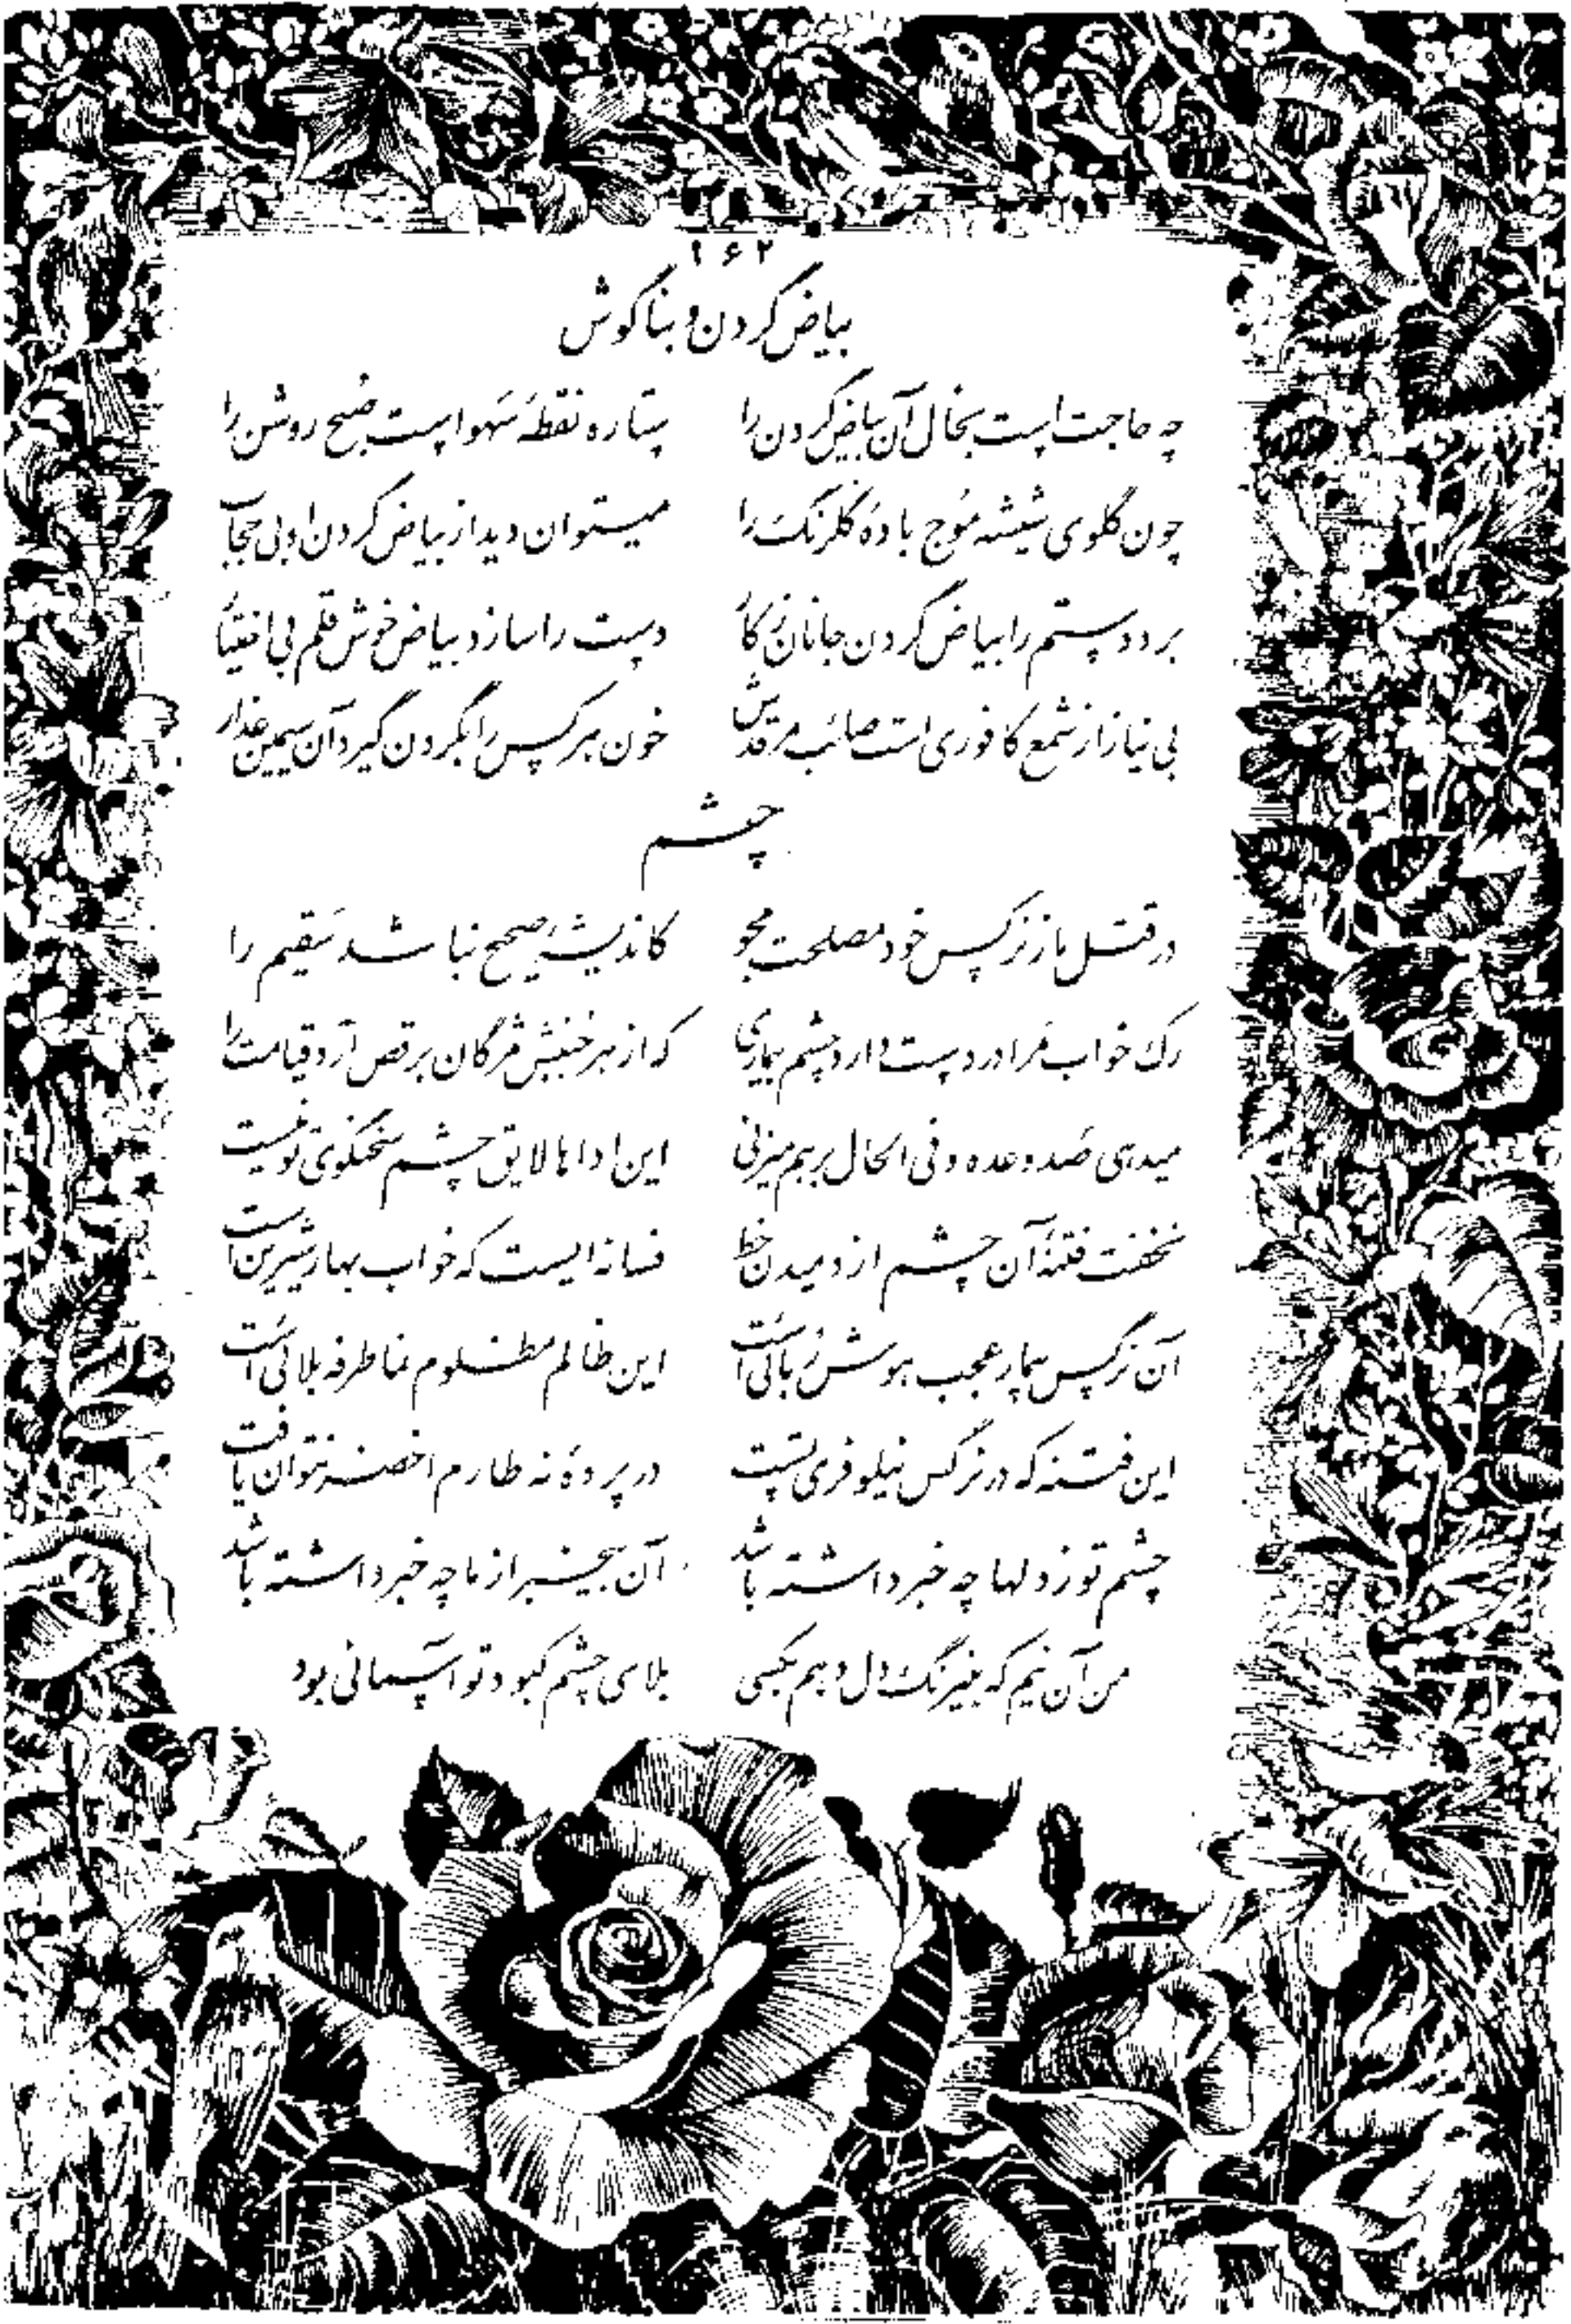 ۱۶۲
بیاض گردن و بناگوش
چه حاجت است بخال آن بیاض گردن را ستاره نقطهٔ سهو است صبح روشن را
چون گلوی شیشه موج بادهٔ گلرنگ را میتوان دید از بیاض گردن او بی حجاب
برد دستم را بیاض گردن جانان ز کار دست را سازد بیاض خوش قلم بی اختیار
بی نیاز از شمع کافوری است صائب مرقدش خون هر کس را بگردن گیرد آن سیمین عذار
چشم
در قتل ما ز نرگس خود مصلحت مجو کاندیشهٔ صحیح نباشد سقیم را
رگ خواب مرا در دست دارد چشم بیماری که از هر جنبش مژگان برقص آرد قیامت را
میدهی صد وعده و فی الحال برهم میزنی این ادا ها لایق چشم سخنگوی تو نیست
نخفت فتنهٔ آن چشم از دمیدن خط فسانه ایست که خواب بهار شیرین است
آن نرگس بیمار عجب هوش ربائی است این ظالم مظلوم نما طرفه بلائی است
این فتنه که در نرگس نیلوفری تست در پردهٔ نه طارم اخضر نتوان یافت
چشم تو ز دلها چه خبر داشته باشد آن بیخبر از ما چه خبر داشته باشد
من آن نیم که بنیرنگ دل دهم بکسی بلای چشم کبود تو آسمانی بود